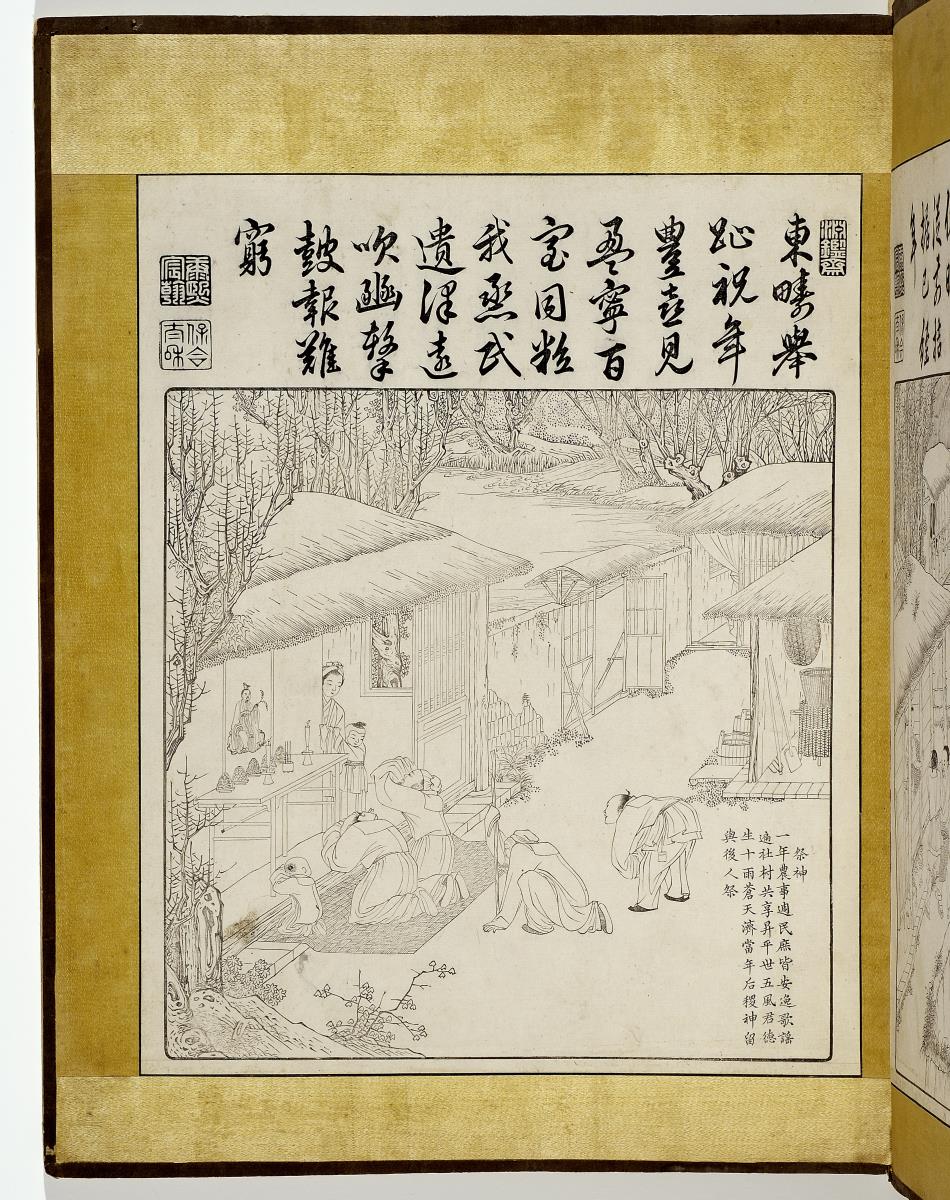 淵鑒齋
東疇舉
趾祝年
豐喜見
盈寧百
室同粒
我烝民
遺澤遠
吹豳擊
鼓報難
窮
康熙宸翰
保合太和
祭神
一年農事週民庶皆安逸歌謠
遍社村共享昇平世五風君德
生十雨蒼天濟當年后稷神留
與後人祭